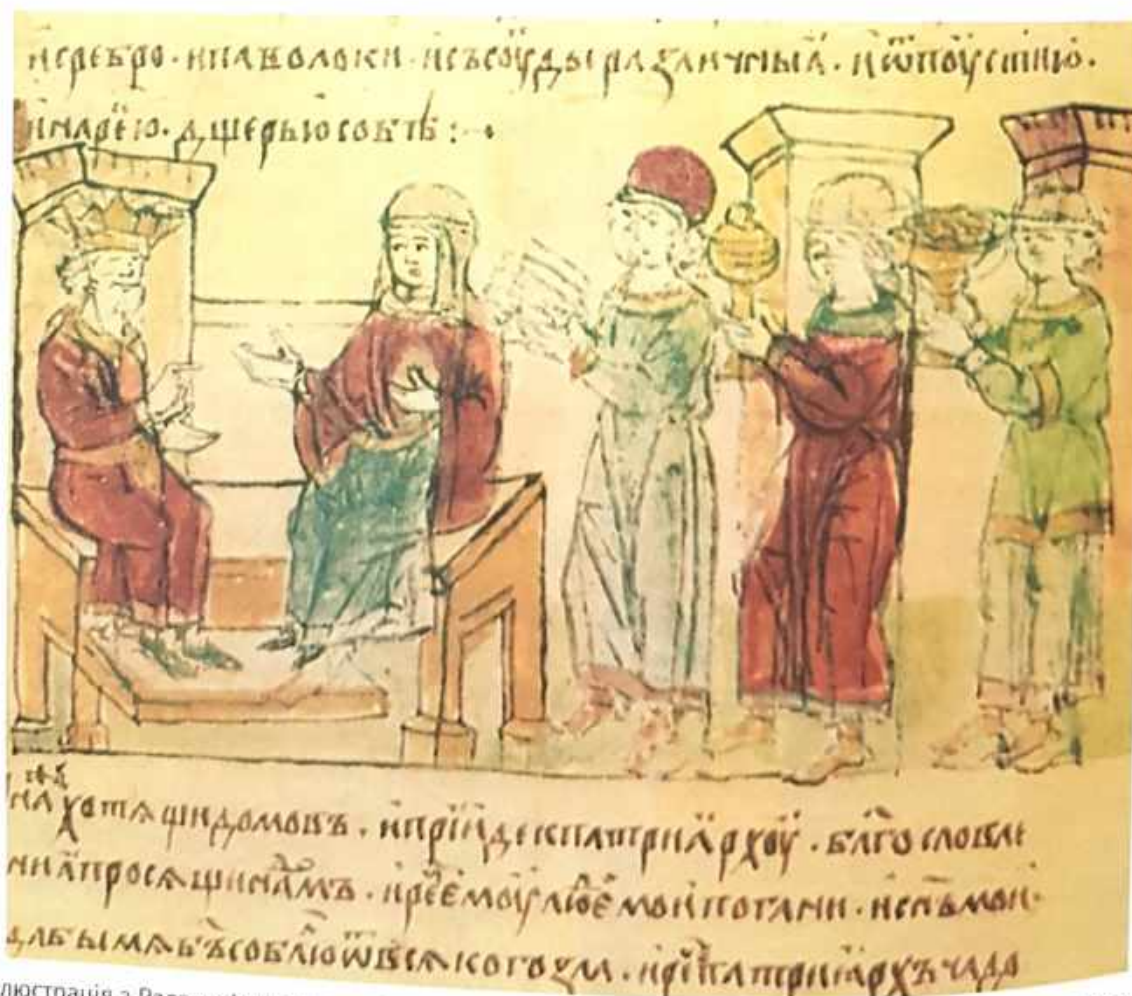 исребро · ипаволоки · исъсоуды различныꙗ · иѿпоустию ·
инарѣю · дщерьюсобѣ :·
ѡна
хотѧщидомовъ · ипрїиде кпатриархоу · блг҃ословле
ниꙗпросѧщинадомъ · ирⷱ҇еемоу людⷷ҇емоипогани · исн҃ъмои ·
дабымѧбъ҃съблюлѿвсѧкогозла · ирⷱ҇епатриархъчадо
люстрація з